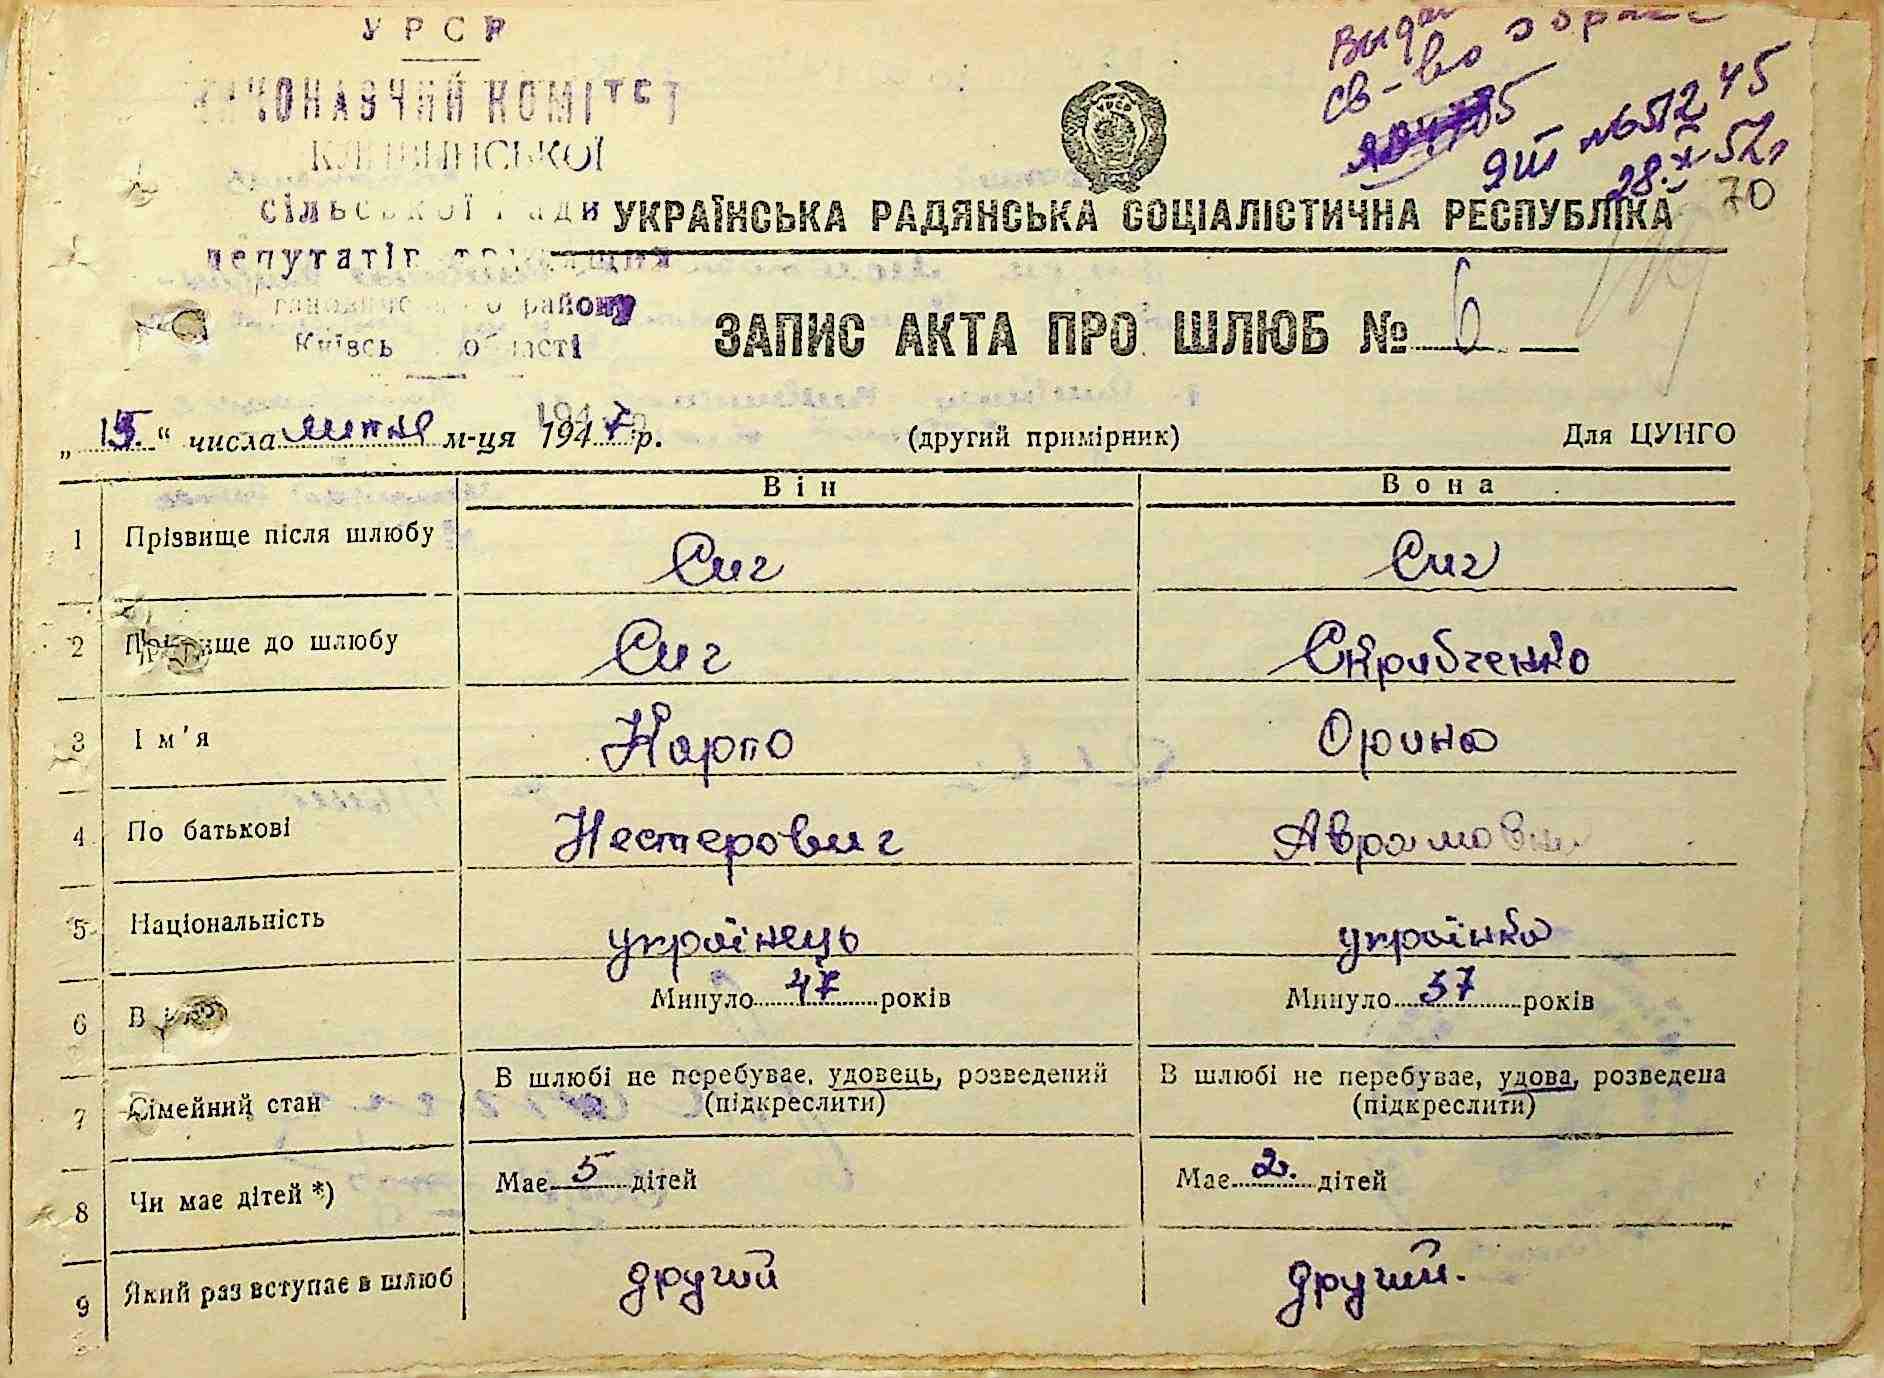 УРСР
ВИКОНАВЧИЙ КОМІТЕТ
сільської Ради
депутатів трудящих
району
Київсь області
Выдан
св-во о браке
ЯШ №651245
28.X-52г
70
УКРАЇНСЬКА РАДЯНСЬКА СОЦІАЛІСТИЧНА РЕСПУБЛІКА
ЗАПИС АКТА ПРО ШЛЮБ № 6
„15.“ числа липня м-ця 1947 р.
(другий примірник)
Для ЦУНГО
Він
Вона
1 Прізвище після шлюбу Сич Сич
2 Прізвище до шлюбу Сич Скрибченко
3 Ім'я Карпо Орина
4 По батькові Нестерович Аврамовна
5 Національність українець українка
6 В Минуло 47 років Минуло 37 років
7 Сімейний стан В шлюбі не перебуває, удовець, розведений (підкреслити) В шлюбі не перебуває, удова, розведена (підкреслити)
8 Чи має дітей *) Має 5 дітей Має 2. дітей
9 Який раз вступає в шлюб другий другий.